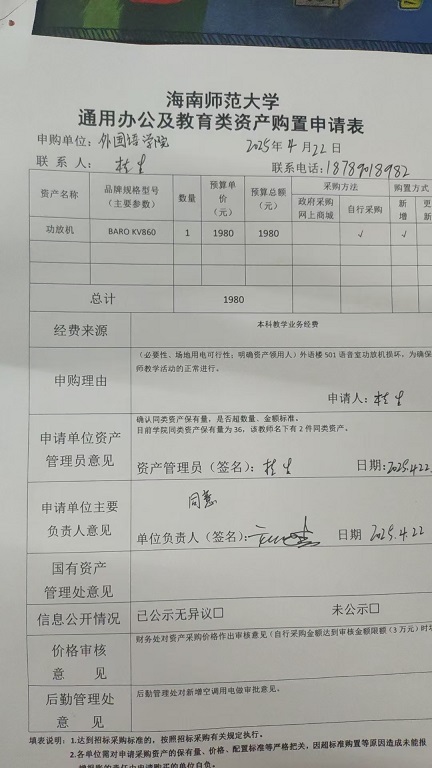 海南师范大学
通用办公及教育类资产购置申请表
申购单位：外国语学院 2025年4月22日
联系人： 联系电话：18789018982
资产名称 品牌规格型号（主要参数） 数量 预算单价（元） 预算总额（元） 采购方法 购置方式
政府采购网上商城 自行采购 新增 更新
功放机 BARO KV860 1 1980 1980 √ √
总计 1980
经费来源 本科教学业务经费
申购理由
（必要性、场地用电可行性；明确资产领用人）外语楼501语音室功放机损坏，为确保
师教学活动的正常进行。
申请人：
申请单位资产管理员意见
确认同类资产保有量，是否超数量、金额标准。
目前学院同类资产保有量为36，该教师名下有2件同类资产。
资产管理员（签名）： 日期：2025.4.22
申请单位主要负责人意见
同意
单位负责人（签名）： 日期 2025.4.22
国有资产管理处意见
信息公开情况 已公示无异议□ 未公示□
价格审核意见 财务处对资产采购价格作出审核意见（自行采购金额达到审核金额限额（3万元）时填
后勤管理处意见 后勤管理处对新增空调用电做审批意见。
填表说明：1.达到招标采购标准的，按照招标采购有关规定执行。
2.各单位需对申请采购资产的保有量、价格、配置标准等严格把关，因超标准购置等原因造成未能报